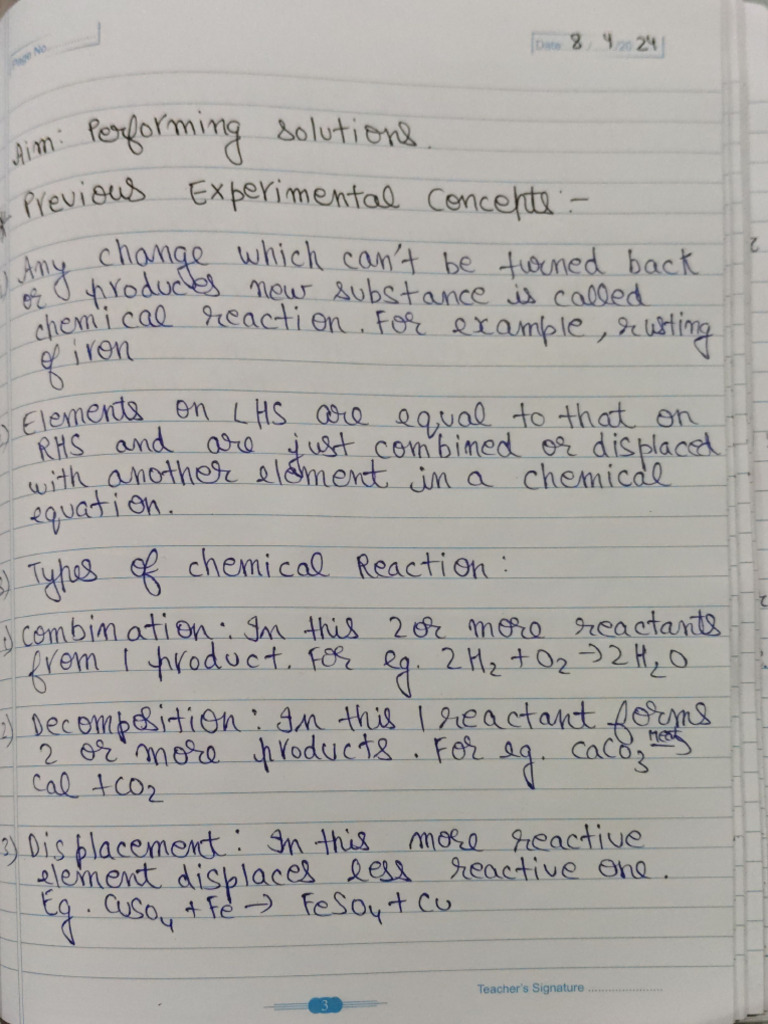 Page No.
Date 8 / 4 /20 24
Aim: Performing solutions.
* Previous Experimental Concepts :-
1) Any change which can't be turned back
or produces new substance is called
chemical reaction. For example, rusting
of iron
2) Elements on LHS are equal to that on
RHS and are just combined or displaced
with another element in a chemical
equation.
3) Types of chemical Reaction :
1) Combination : In this 2 or more reactants
from 1 product. For eg. 2H₂ + O₂ → 2H₂O
2) Decomposition : In this 1 reactant forms
2 or more products. For eg. CaCO₃ heat→
Cal + CO₂
3) Displacement : In this more reactive
element displaces less reactive one.
Eg. CuSO₄ + Fe → FeSO₄ + Cu
Teacher's Signature ......................
3